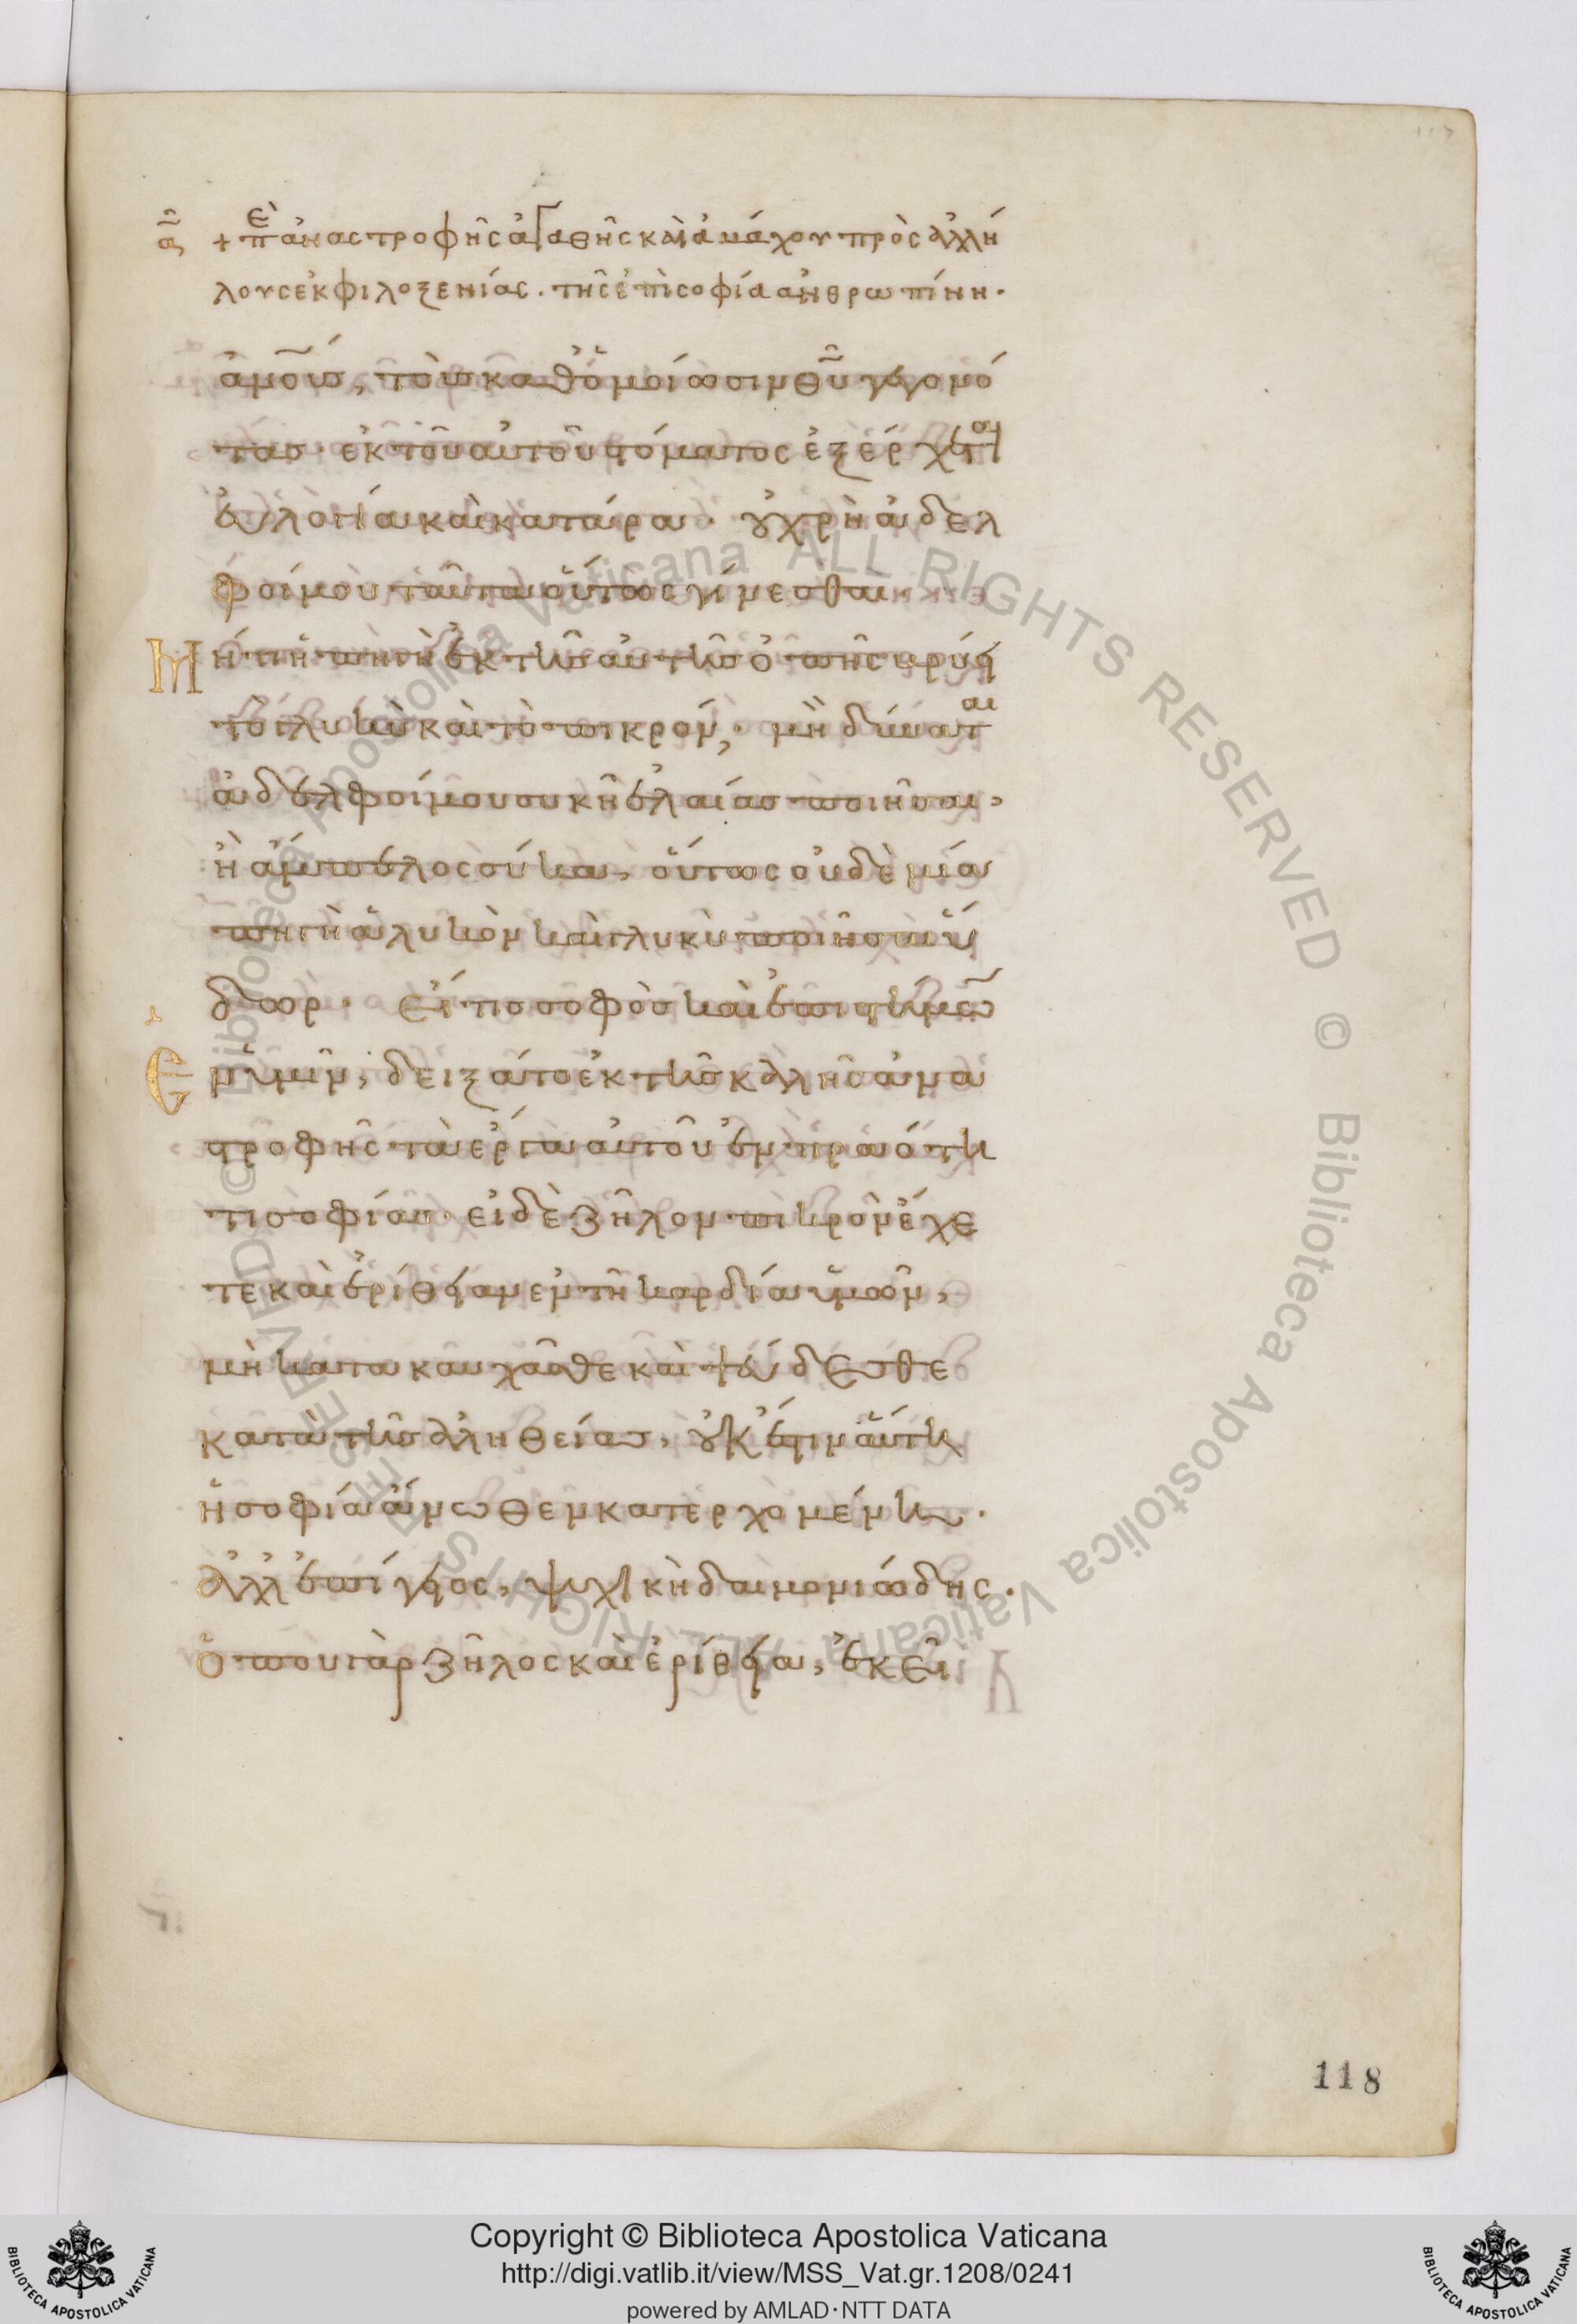 α̅ + Πὲ ἀναστροφῆς ἀγαθῆς καὶ ἀμάχου πρὸς ἀλλή
λους ἐκ φιλοξενίας. τῆς ἐπὶ σοφία ἀνθρωπίνη.
ἀνο̅υ̅ς, τοὺς καθ ὁμοίωσιν θ̅υ̅ γεγονό
τας. ἐκ τοῦ αὐτοῦ στόματος ἐξέρχεται
εὐλογία καὶ κατάρα. οὐ χρὴ ἀδελ
φοί μου ταῦτα οὕτως γίνεσθαι
Μήτι ἡ πηγὴ ἐκ τῆς αὐτῆς ὀπῆς βρύει
τὸ γλυκὺ καὶ τὸ πικρόν; μὴ δύναται
ἀδελφοί μου συκῆ ἐλαίας ποιῆσαι,
ἢ ἄμπελος σύκα, οὕτως οὐδὲ μία
πηγὴ ἁλυκὸν καὶ γλυκὺ ποιῆσαι ὕ
δωρ. Εἴ τις σοφὸς καὶ ἐπιστήμων
Ἐν ὑμῖν, δειξάτο ἐκ τῆς καλλῆς ἀνα
στροφῆς τὰ ἔργα αὐτοῦ ἐν πραότη
τι σοφίας. εἰ δὲ ζῆλον πικρὸν ἔχε
τε καὶ ἐρίθειαν ἐν τῇ καρδία ὑμῶν,
μὴ κατακαυχᾶσθε καὶ ψεύδεσθε
κατὰ τῆς ἀληθείας, οὐκ ἔστιν αὕτη
ἡ σοφία ἄνωθεν κατερχομένη.
ἀλλ ἐπίγειος, ψυχικὴ δαιμονιώδης.
ὅπου γὰρ ζῆλος καὶ ἐρίθεια, ἐκεῖ
118
© Biblioteca Apostolica Vaticana ALL RIGHTS RESERVED © Biblioteca Apostolica Vaticana ALL RIGHTS RESERVED
BIBLIOTECA APOSTOLICA VATICANA
Copyright © Biblioteca Apostolica Vaticana
http://digi.vatlib.it/view/MSS_Vat.gr.1208/0241
powered by AMLAD·NTT DATA
BIBLIOTECA APOSTOLICA VATICANA